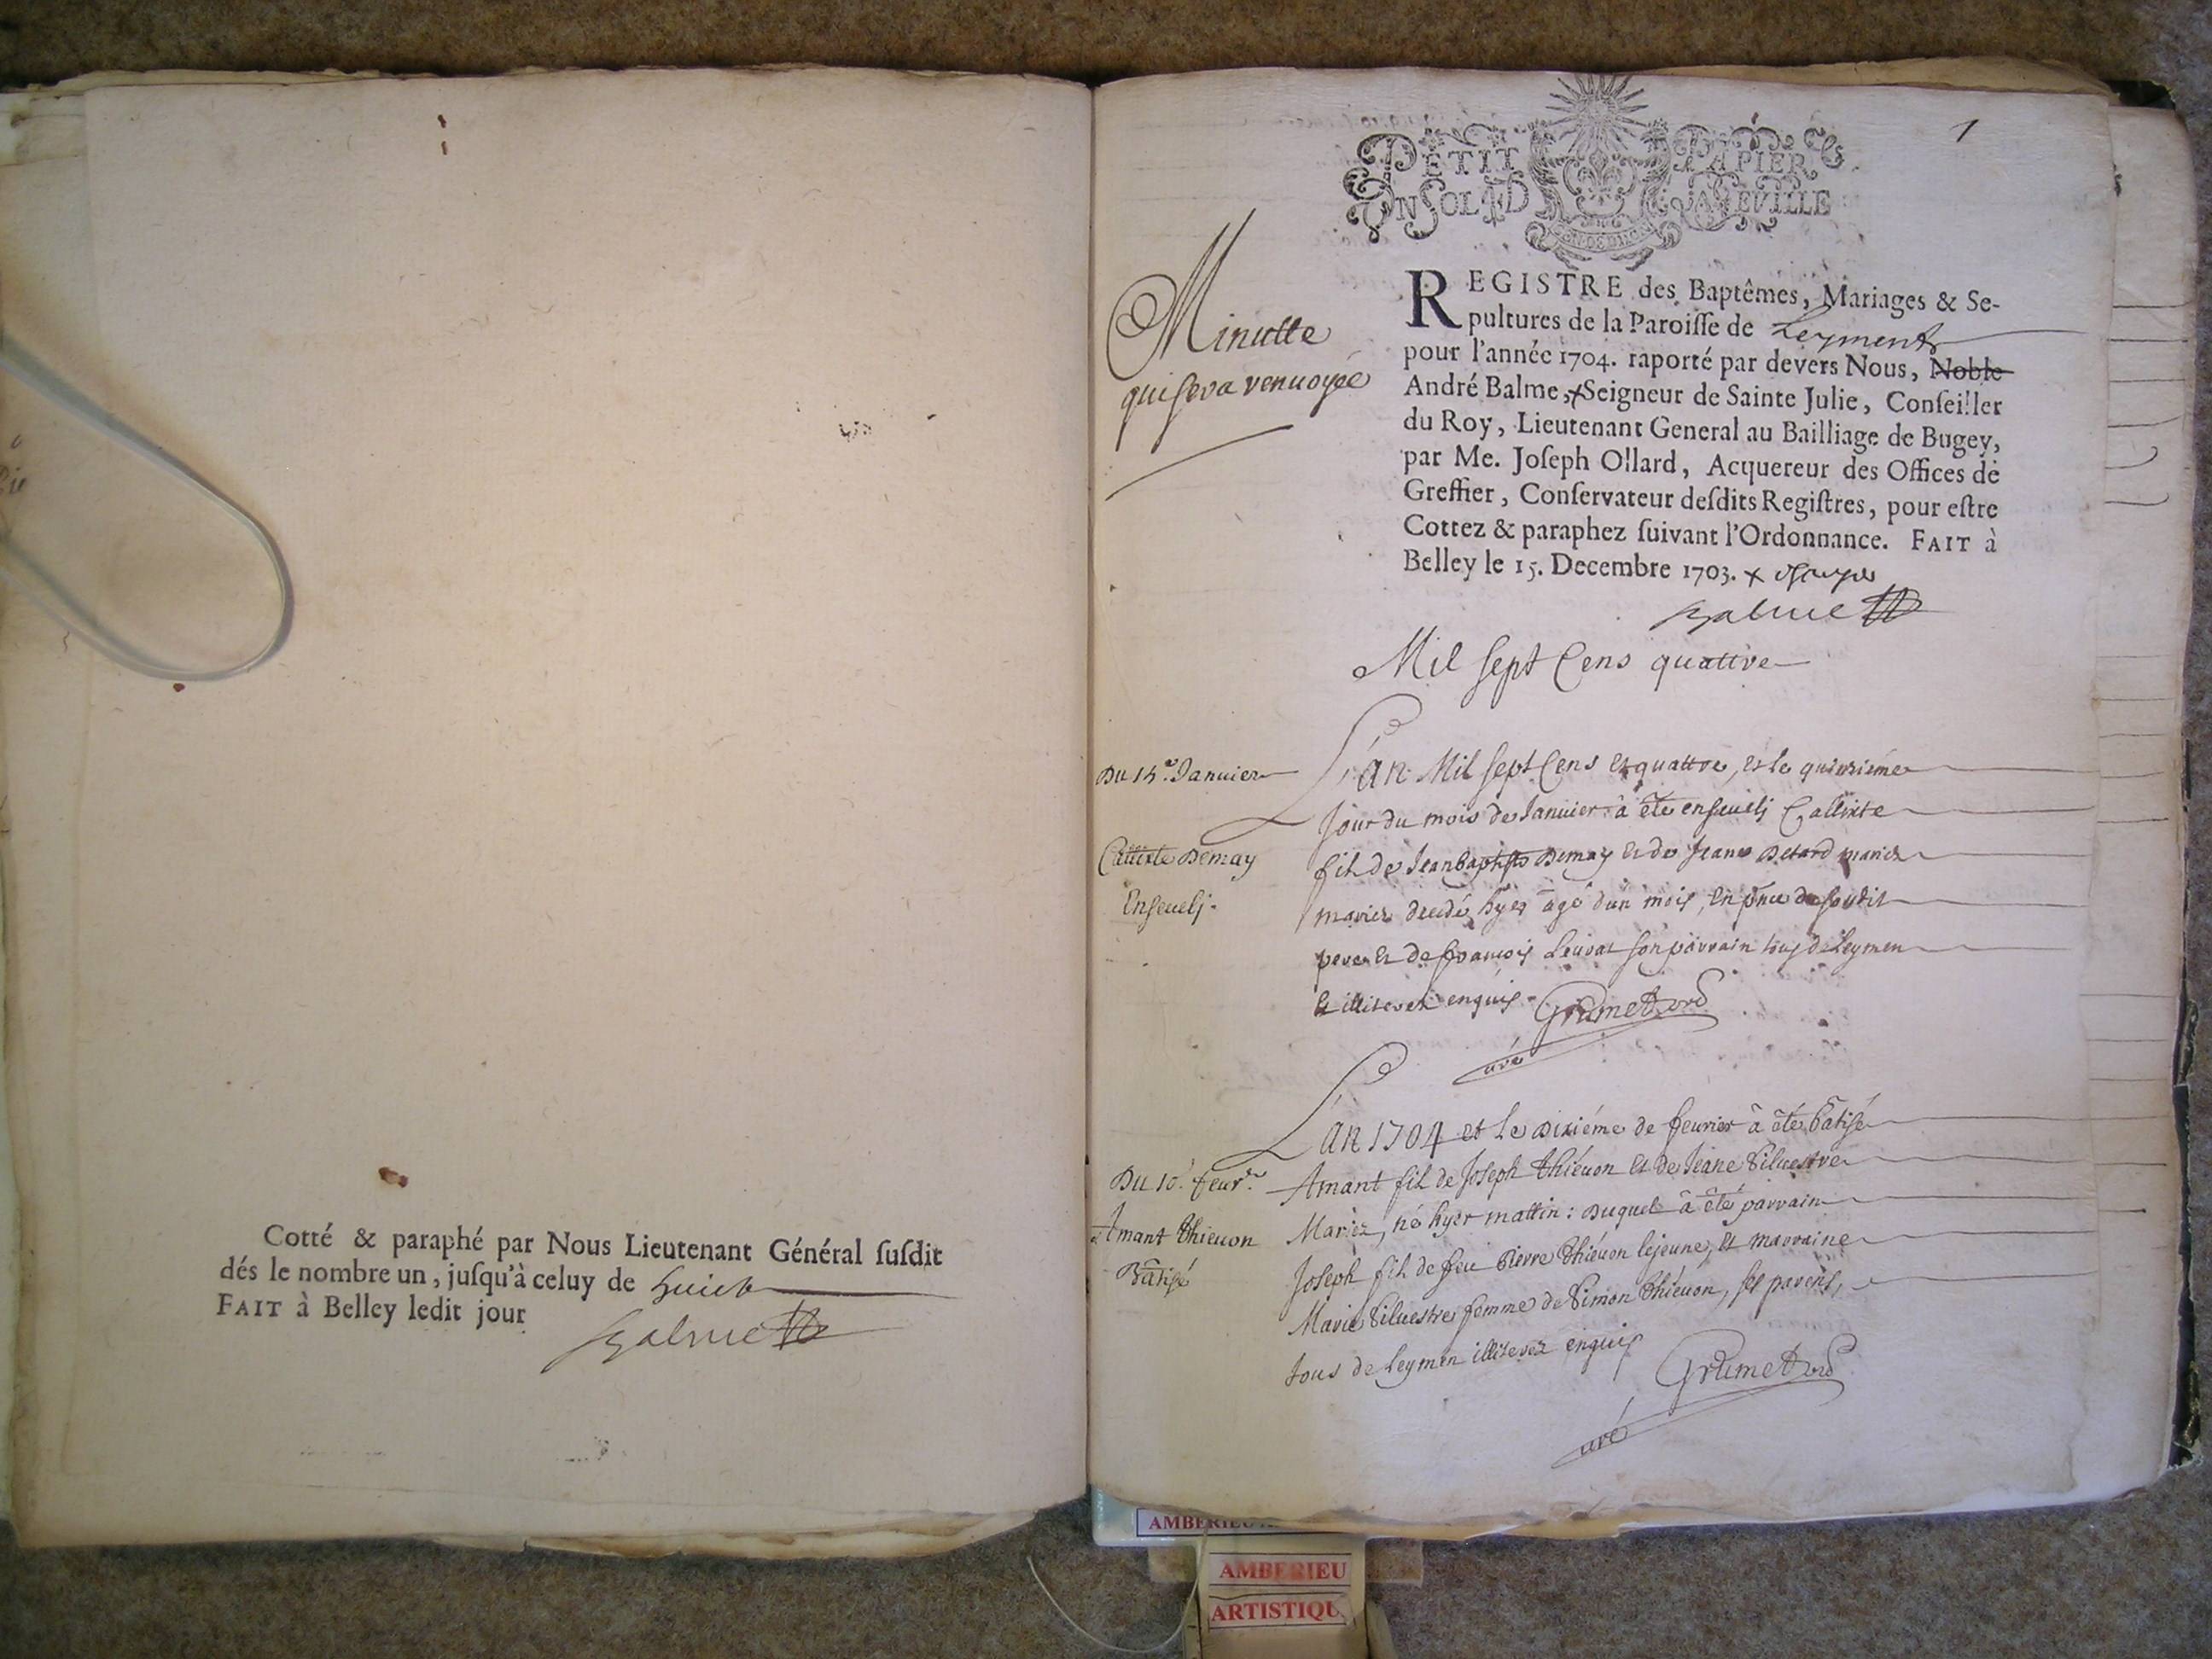 Cotté & paraphé par Nous Lieutenant Général susdit
dés le nombre un, jusqu'à celuy de huict
FAIT à Belley ledit jour
Balme
1
PETIT PAPIER
UN SOL LA FEVILLE
Minutte
qui sera renuoyée
REGISTRE des Baptêmes, Mariages & Se-
pultures de la Paroisse de Leyment
pour l'année 1704. raporté par devers Nous, Noble
André Balme, + Seigneur de Sainte Julie, Conseiller
du Roy, Lieutenant General au Bailliage de Bugey,
par Me. Joseph Ollard, Acquereur des Offices de
Greffier, Conservateur desdits Registres, pour estre
Cottez & paraphez suivant l'Ordonnance. FAIT à
Belley le 15. Decembre 1703. +
Balme
Mil sept Cens quattre
Du 15e. Januier
Callixte Demay
Enseuelj.
L'an Mil sept Cens et quattre, et le quinziéme
Jour du mois de Januier à été enseuelj Callixte
fil de Jean baptiste Demay et de Jeane mariez
mariez decedé hyer âgé d'un mois, en pnce de soudit
pere et de françois Leurat son parrain tous de Leymen
et illiterez enquis. Grumet
curé
Du 10e. feur.
Amant Thieuon
Bâtisé
L'an 1704 et le Dixiéme de feurier à été bâtisé
Amant fil de Joseph Thiéuon et de Jeane Siluestre
Mariez, né hyer mattin: Duquel à été parrain
Joseph fil de feu Pierre Thiéuon lejeune, et marraine
Marie Siluestre femme de Simon Thiéuon, ses parens,
tous de Leymen illiterez enquis
Grumet
curé
AMBERIEU
AMBERIEU
ARTISTIQU